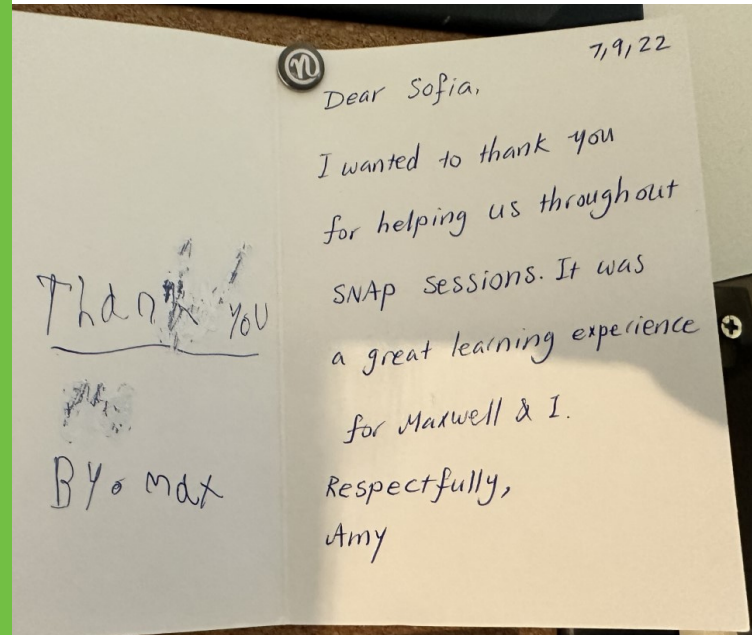 Thank YOU
BY: Max
7,9,22
Dear Sofia,
I wanted to thank you
for helping us throughout
SNAP sessions. It was
a great learning experience
for Maxwell & I.
Respectfully,
Amy
n